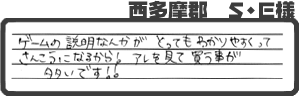 西多摩郡 S・E様
ゲームの説明なんかが とってもわかりやすくって
さんこうになるから! アレを見て買う事が
タタいです!!